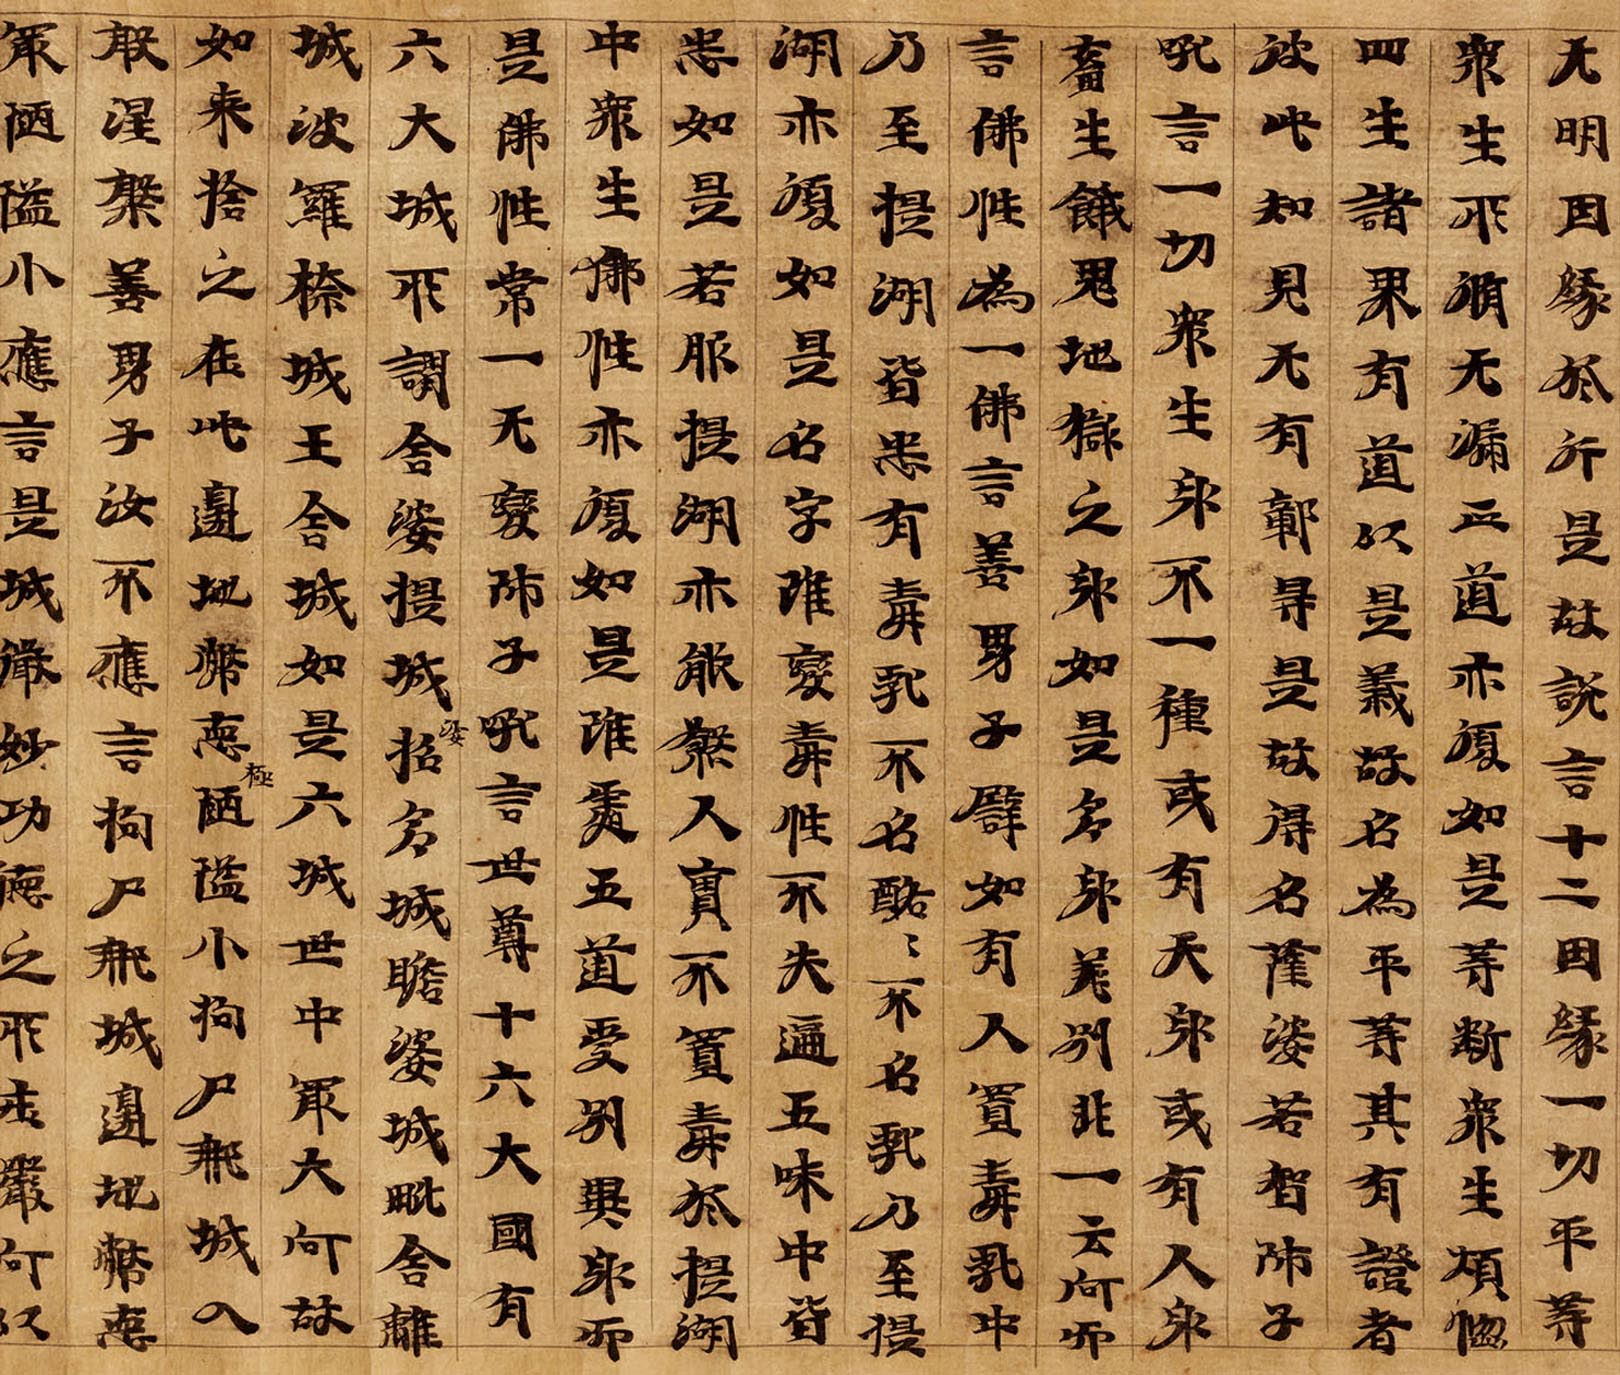 无明因緣於行是故說言十二因緣一切平等
衆生所順无漏正道亦復如是等斷衆生煩惱
四生諸果有道以是義故名為平等其有證者
彼此知見无有鄣㝵是故得名薩婆若智師子
吼言一切衆生身不一種或有天身或有人身
畜生餓鬼地獄之身如是多身差別非一云何而
言佛性為一佛言善男子譬如有人置毒乳中
乃至提湖皆悉有毒乳不名酪〻不名乳乃至提
湖亦復如是名字雖變毒性不失遍五味中皆
悉如是若服提湖亦能煞人實不置毒於提湖
中衆生佛性亦復如是雖處五道受別異身而
是佛性常一无變師子吼言世尊十六大國有
六大城所謂舍婆提城婆招多城瞻婆城毗舍離
城波羅㮈城王舍城如是六城世中最大何故
如来捨之在此邊地弊惡極陋隘小拘尸那城入
般涅槃善男子汝不應言拘尸那城邊地弊惡
最陋隘小應言是城微妙功德之所莊嚴何以